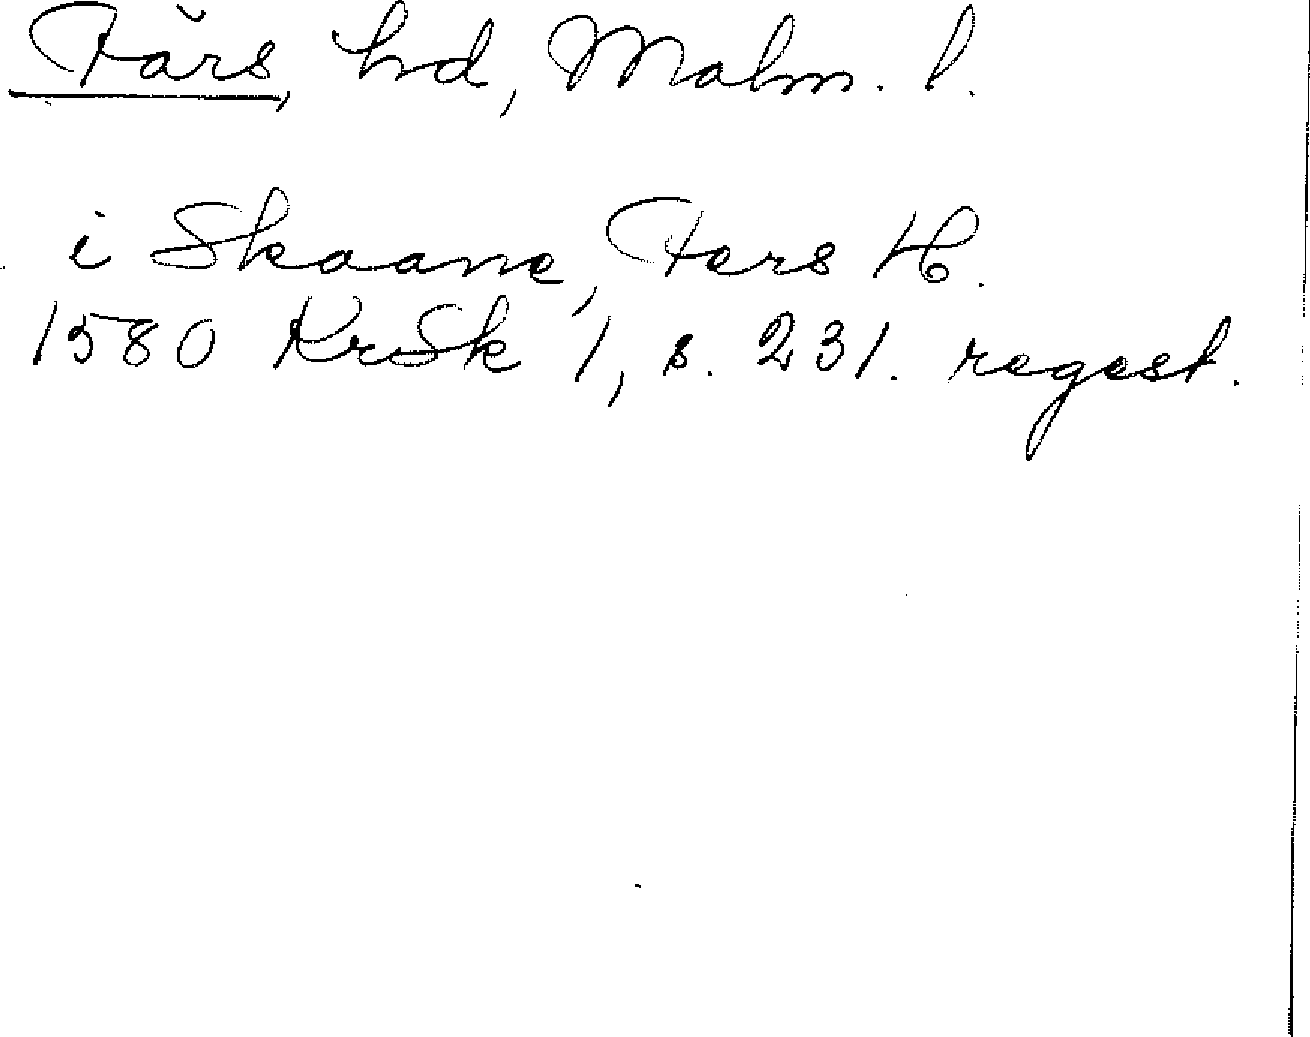 Färs hd, Malm. l.
i Skaane, Fers H.
1580 KrSk 1, s. 231. regest.